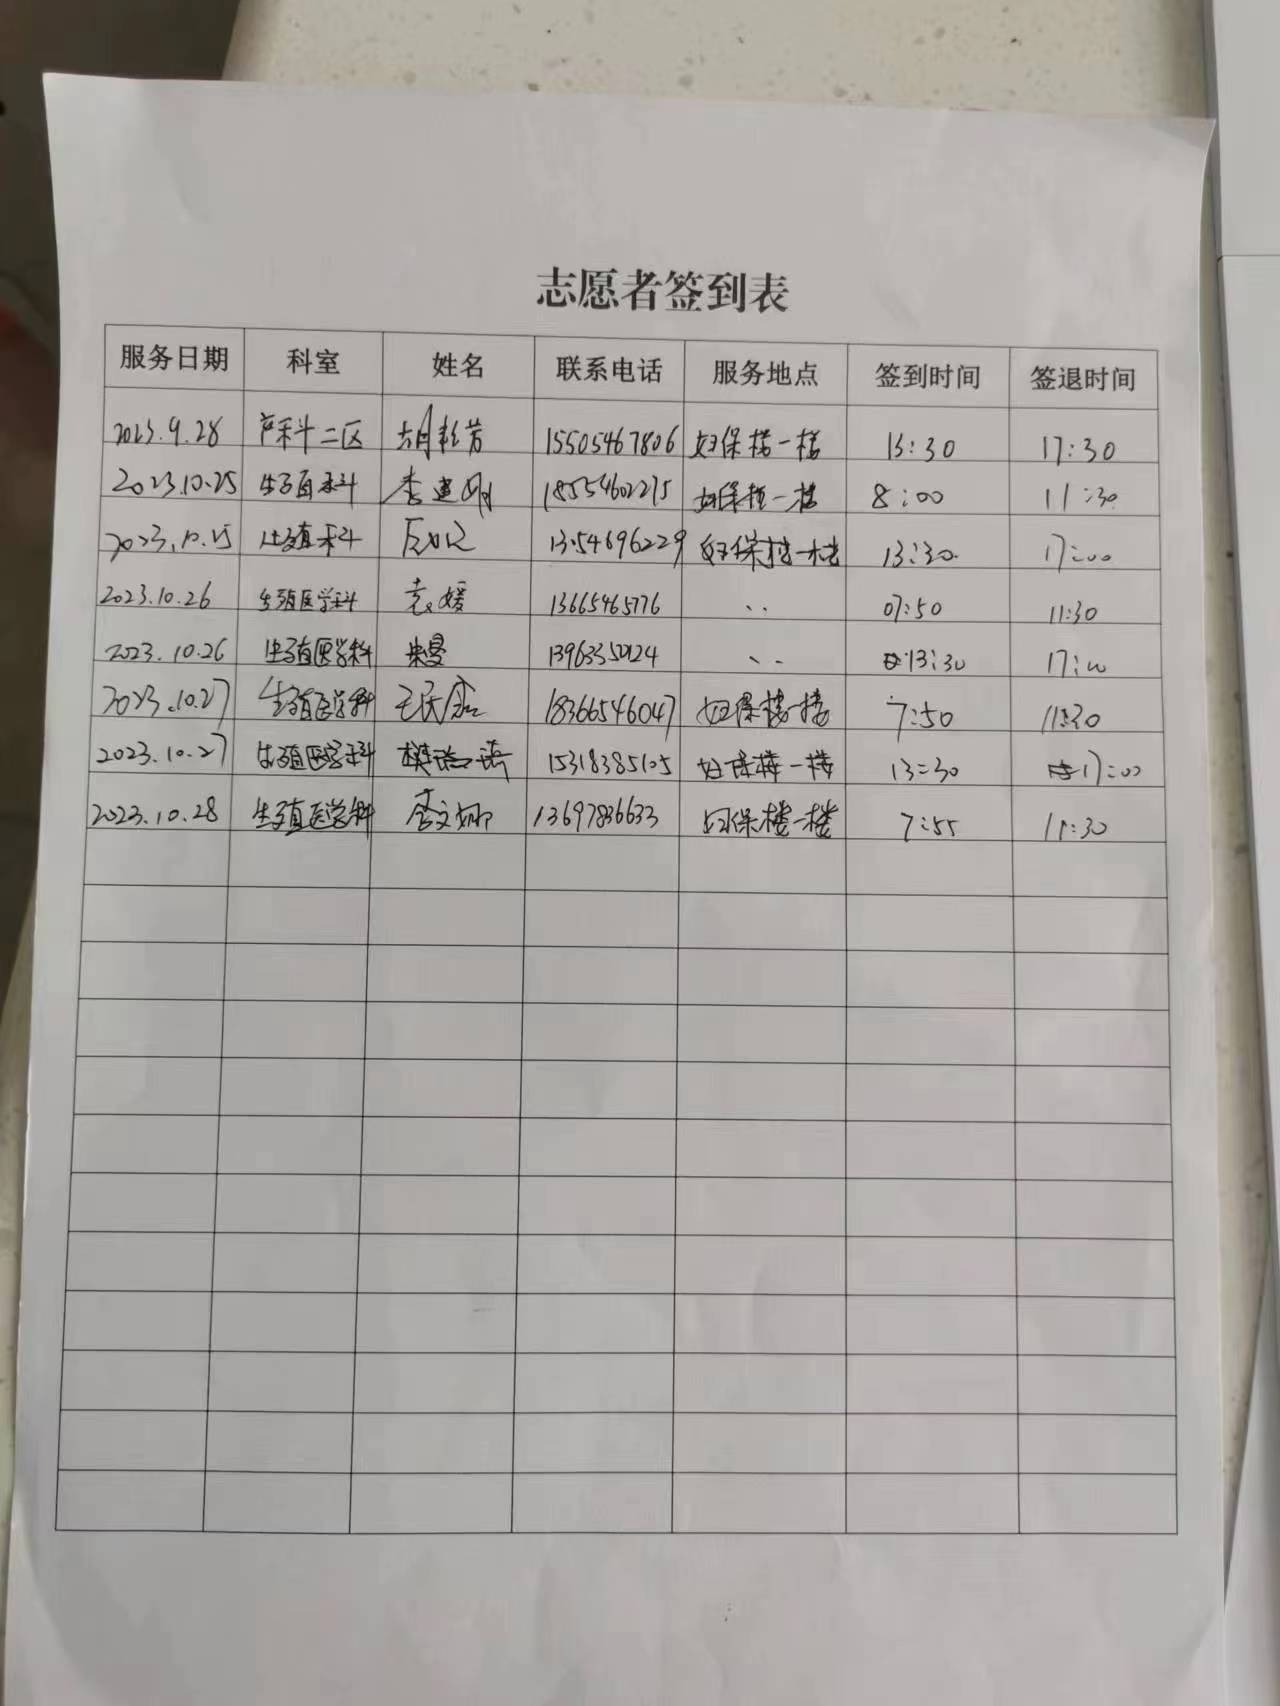 志愿者签到表
服务日期 科室 姓名 联系电话 服务地点 签到时间 签退时间
2023.9.28 产科二区 15505467806 妇保楼一楼 13:30 17:30
2023.10.25 生殖科 李建刚 18554602275 妇保楼一楼 8:00 11:30
2023.10.25 生殖科 妇保楼一楼 13:30 17:00
2023.10.26 生殖医学科 袁媛 13665465776 、、 07:50 11:30
2023.10.26 生殖医学科 朱曼 、、 13:30 17:00
2023.10.27 生殖医学科 18366546047 妇保楼一楼 7:50 11:30
2023.10.27 生殖医学科 15318385105 妇保楼一楼 13:30 17:00
2023.10.28 生殖医学科 李文娜 13697836633 妇保楼一楼 7:55 11:30